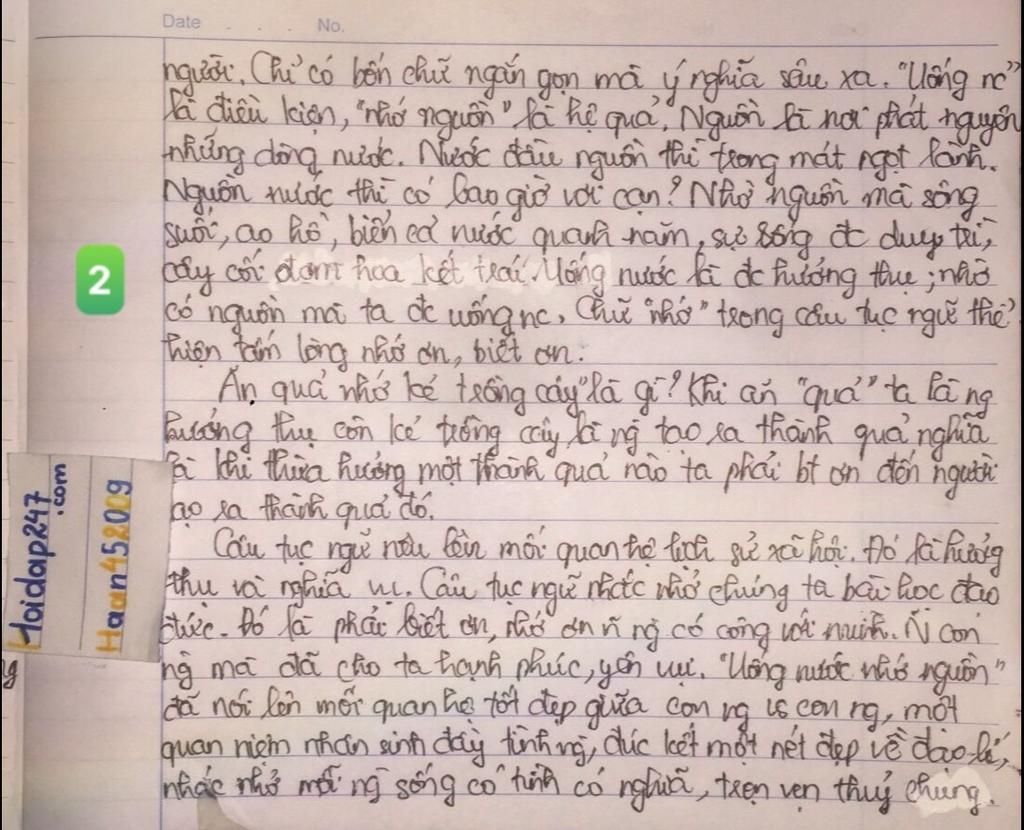 Date No.
người. Chỉ có bốn chữ ngắn gọn mà ý nghĩa sâu xa. "Uống nc"
là điều kiện, "nhớ nguồn" là hệ quả. Nguồn là nơi phát nguyên
những dòng nước. Nước đầu nguồn thì trong mát ngọt lành.
Nguồn nước thì có bao giờ vơi cạn? Nhờ nguồn mà sông
suối, ao hồ, biển cả nước quanh năm, sự sống đc duy trì,
cây cối đơm hoa kết trái. Uống nước là đc hưởng thụ; nhờ
có nguồn mà ta đc uống nc. Chữ "nhớ" trong câu tục ngữ thể
hiện tấm lòng nhớ ơn, biết ơn.
Ăn quả nhớ kẻ trồng cây" là gì? Khi ăn "quả" ta là ng
hưởng thụ còn kẻ trồng cây là ng tạo ra thành quả nghĩa
là khi thừa hưởng một thành quả nào ta phải bt ơn đến người
tạo ra thành quả đó.
Câu tục ngữ nêu lên mối quan hệ lịch sử xã hội. Đó là hưởng
thụ và nghĩa vụ. Câu tục ngữ nhắc nhở chúng ta bài học đạo
đức. Đó là phải biết ơn, nhớ ơn n~ ng có công với mình. N~ con
ng mà đã cho ta hạnh phúc, yên vui. "Uống nước nhớ nguồn"
đã nói lên mối quan hệ tốt đẹp giữa con ng vs con ng, một
quan niệm nhân sinh đầy tình ng, đúc kết một nét đẹp về đạo lí,
nhắc nhở mỗi ng sống có tình có nghĩa, trọn vẹn thuỷ chung.
2
Hoidap247
.com
Haan452009
ng